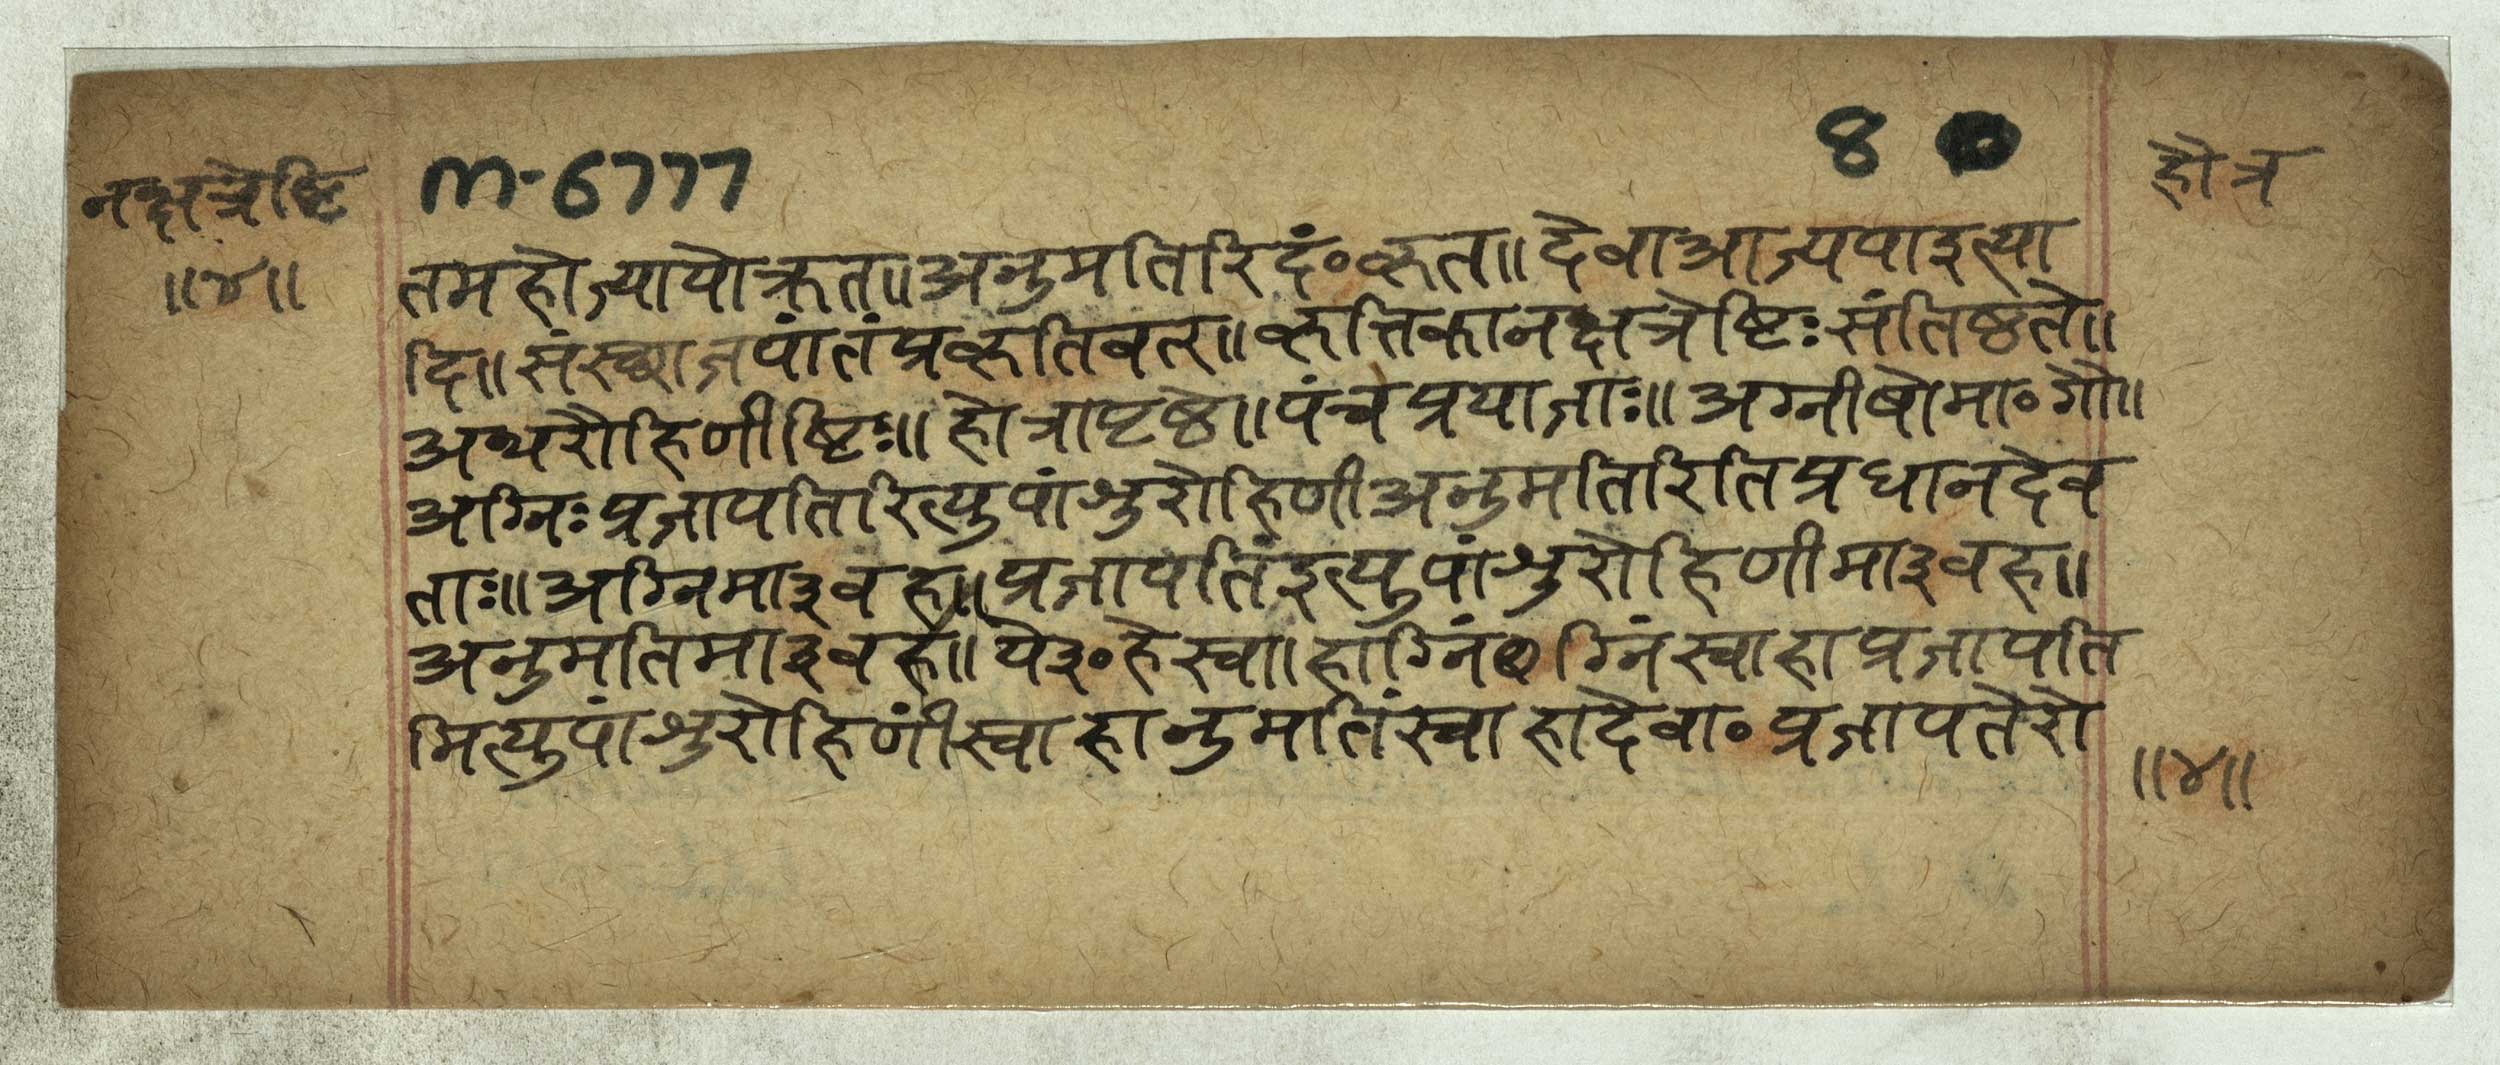 नक्षत्रेष्टि
॥४॥
M-6777
8
हौत्र
तमहोज्यायोक्रत॥अनुमतिरिदं०कृत॥देवाआज्यपाइत्या
दि॥संस्थाजपांतंप्रकृतिवत्॥कृत्तिकानक्षत्रेष्टिःसंतिष्ठते॥
अथरोहिणीष्टिः॥हौत्रापृष्ठे॥पंचप्रयाजाः॥अग्नीषोमा०गौ॥
अग्निःप्रजापतिरित्युपांशुरोहिणीअनुमतिरितिप्रधानदेव
ताः॥अग्निमा३वह॥प्रजापतिंइत्युपांशुरोहिणीमा३वह॥
अनुमतिमा३वह॥ये३०हेस्वा।हाग्निंग्निंस्वाहाप्रजापति
मित्युपांशुरोहिणींस्वाहानुमतिंस्वाहादेवा०प्रजापतेरो
॥४॥